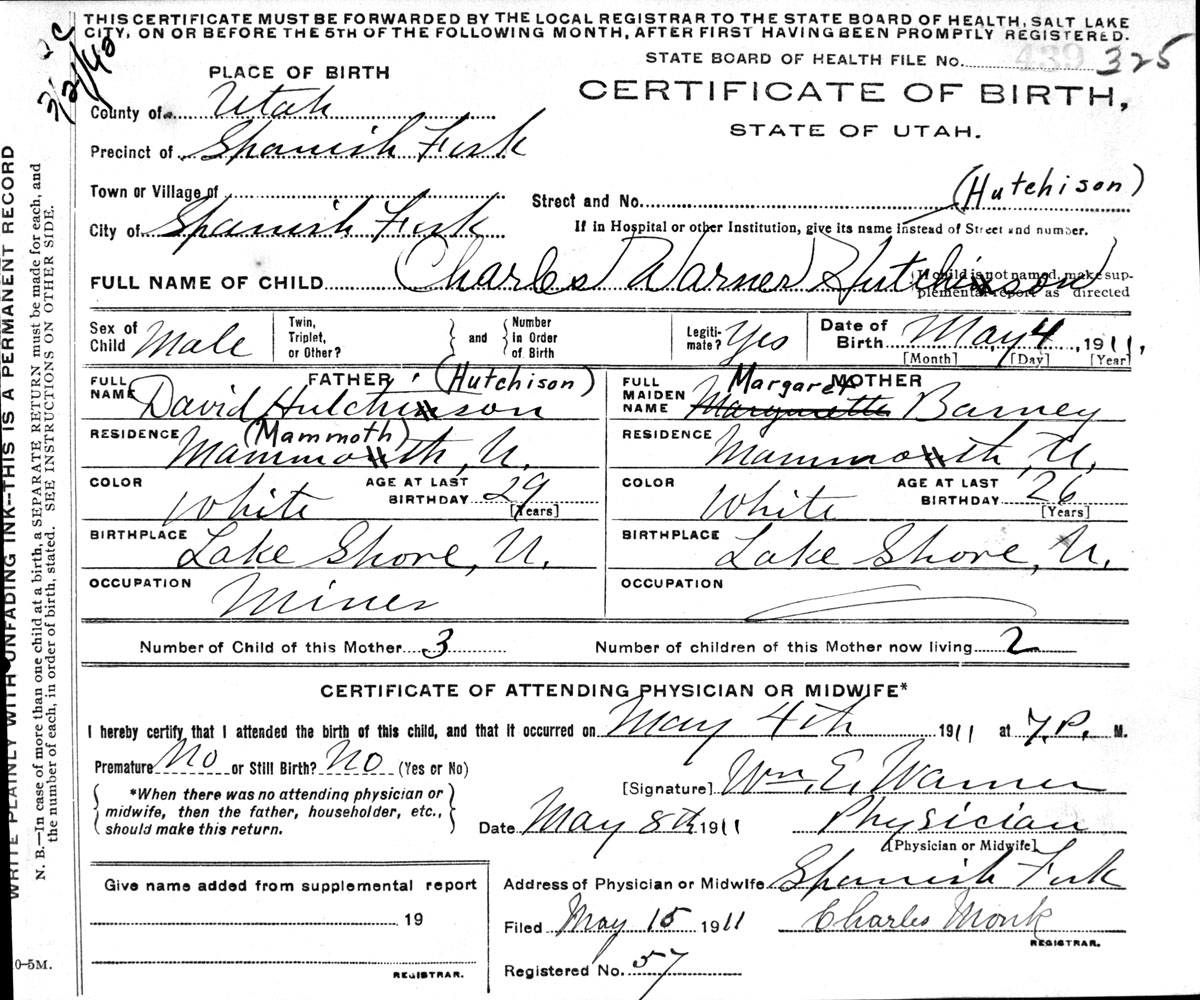 THIS CERTIFICATE MUST BE FORWARDED BY THE LOCAL REGISTRAR TO THE STATE BOARD OF HEALTH, SALT LAKE
CITY, ON OR BEFORE THE 5TH OF THE FOLLOWING MONTH, AFTER FIRST HAVING BEEN PROMPTLY REGISTERED.
STATE BOARD OF HEALTH FILE No. 439 325
PLACE OF BIRTH
CERTIFICATE OF BIRTH,
STATE OF UTAH.
County of Utah
Precinct of Spanish Fork
Town or Village of
Street and No. (Hutchison)
City of Spanish Fork
If in Hospital or other Institution, give its name instead of Street and number.
FULL NAME OF CHILD Charles Warner Hutchinson
(If child is not named, make sup-
plemental report as directed
Sex of Child Male
Twin, Triplet, or Other?
and
Number in Order of Birth
Legiti-mate? Yes
Date of Birth May 4, 1911,
[Month] [Day] [Year]
FATHER (Hutchison)
FULL NAME David Hutchinson
RESIDENCE (Mammoth) Mammouth, U.
COLOR White
AGE AT LAST BIRTHDAY 29
[Years]
BIRTHPLACE Lake Shore, U.
OCCUPATION Miner
MOTHER
FULL MAIDEN NAME Margaret Barney
RESIDENCE Mammouth, U.
COLOR White
AGE AT LAST BIRTHDAY 26
[Years]
BIRTHPLACE Lake Shore, U.
OCCUPATION
Number of Child of this Mother 3
Number of children of this Mother now living 2
CERTIFICATE OF ATTENDING PHYSICIAN OR MIDWIFE*
I hereby certify that I attended the birth of this child, and that it occurred on May 4th 1911 at 7.P. M.
Premature No or Still Birth? No (Yes or No)
*When there was no attending physician or
midwife, then the father, householder, etc.,
should make this return.
[Signature] Wm. E. Warner
Date May 8th 1911
Physician
[Physician or Midwife]
Address of Physician or Midwife Spanish Fork
Filed May 15 1911 Charles Monk
REGISTRAR.
Registered No. 57
Give name added from supplemental report
19
REGISTRAR.
WRITE PLAINLY WITH UNFADING INK--THIS IS A PERMANENT RECORD
N. B.—In case of more than one child at a birth, a SEPARATE RETURN must be made for each, and
the number of each, in order of birth, stated. SEE INSTRUCTIONS ON OTHER SIDE.
0-5M.